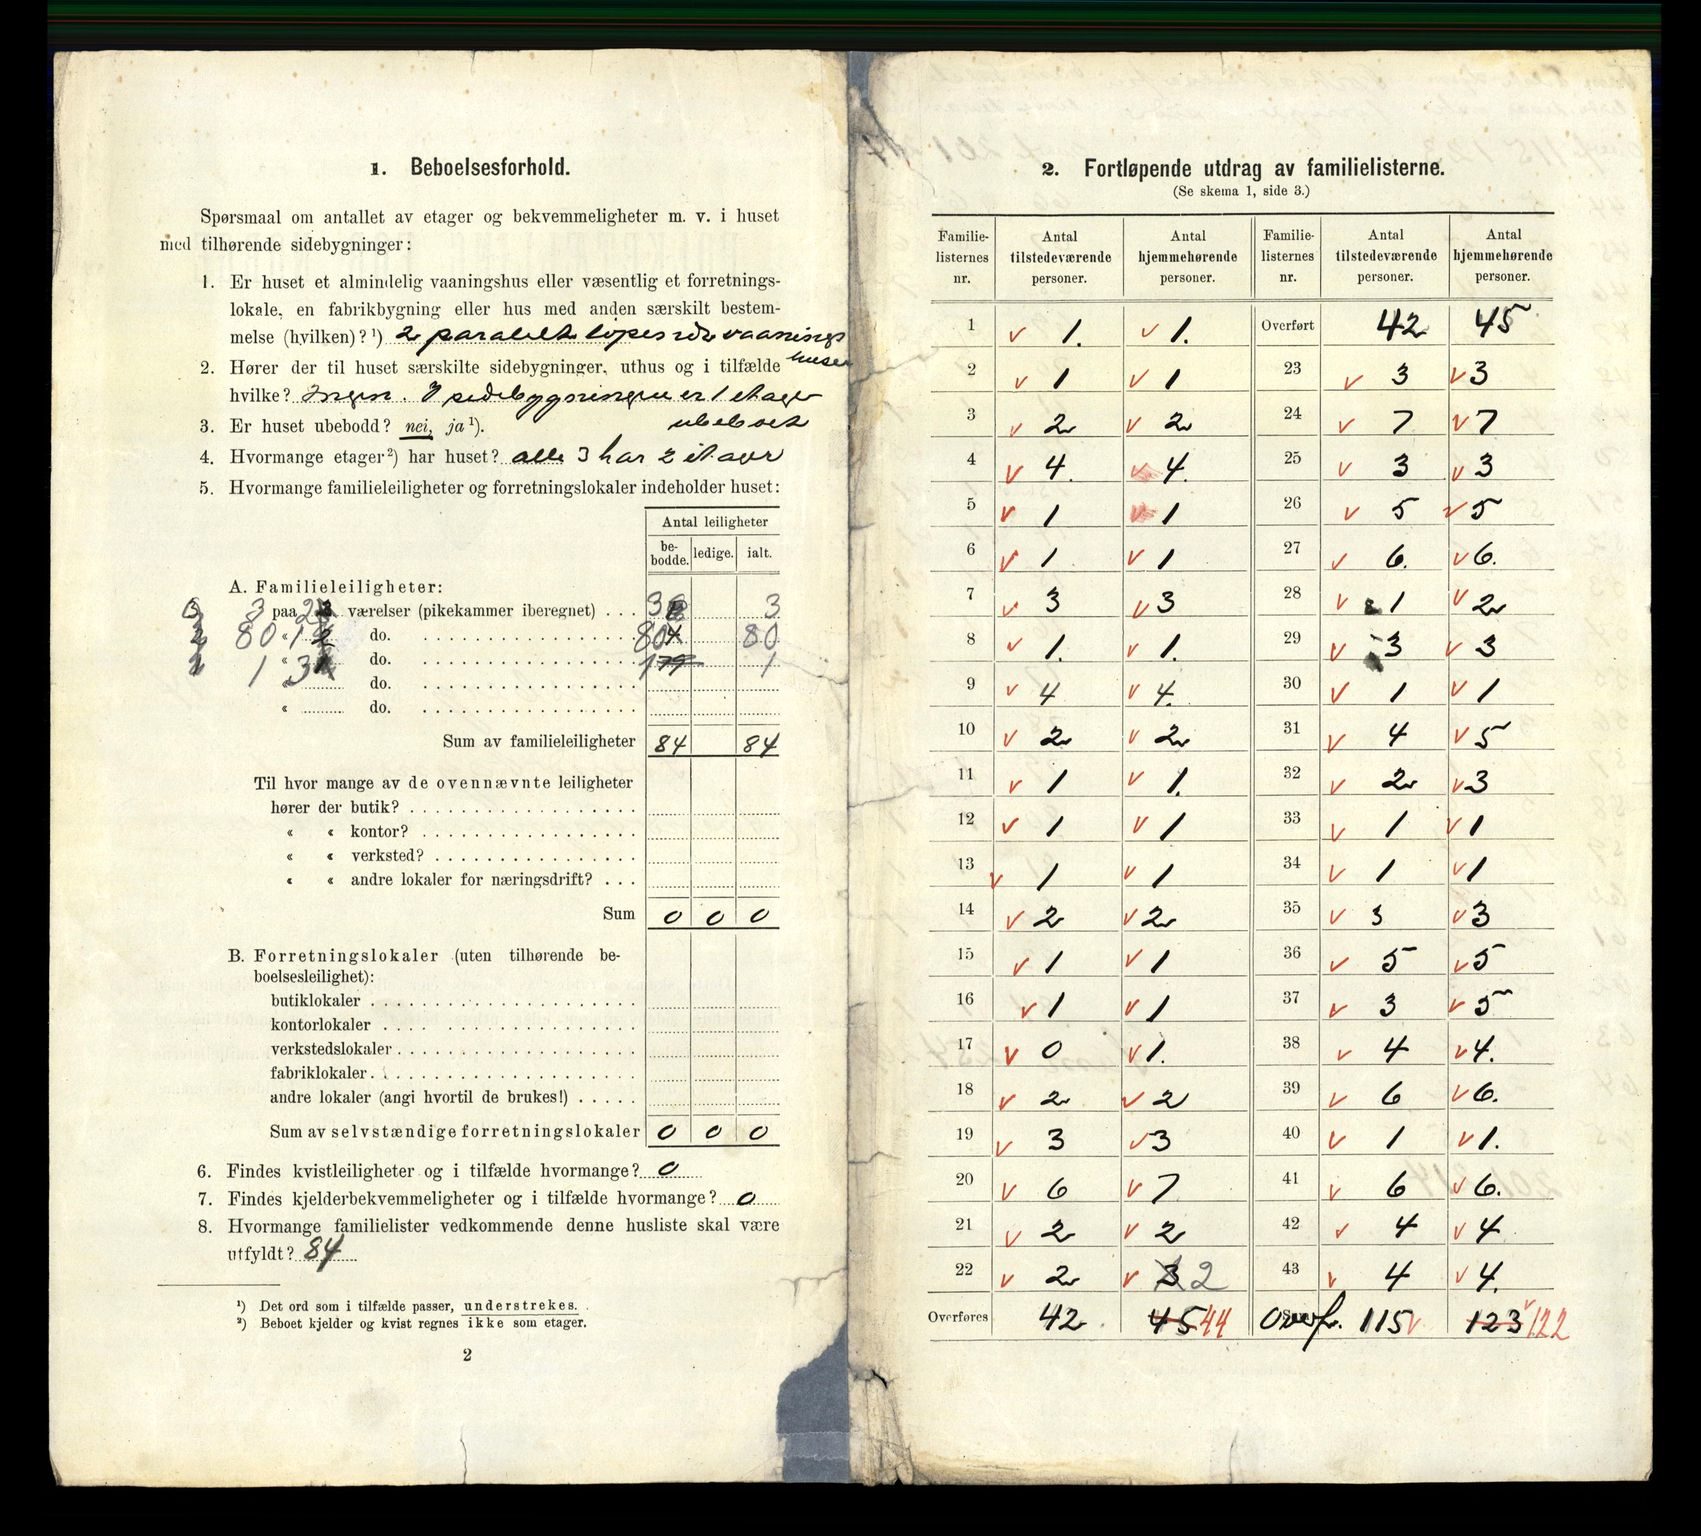 1. Beboelsesforhold.
Spørsmaal om antallet av etager og bekvemmeligheter m. v. i huset
med tilhørende sidebygninger:
1. Er huset et almindelig vaaningshus eller væsentlig et forretnings-
lokale, en fabrikbygning eller hus med anden særskilt bestem-
melse (hvilken)? ¹) 2 paralelt løpende vaanings
huser
2. Hører der til huset særskilte sidebygninger, uthus og i tilfælde
hvilke? Ingen. I sidebygningene er 1 etage
ubeboet
3. Er huset ubebodd? nei, ja ¹).
4. Hvormange etager ²) har huset? alle 3 har 2 etager
5. Hvormange familieleiligheter og forretningslokaler indeholder huset:
Antal leiligheter
be-bodde. ledige. ialt.
A. Familieleiligheter:
3 3 paa 2 værelser (pikekammer iberegnet) . . . 3 3
2 80 « 1 do. 80 80
1 1 « 3 do. 1 1
« do.
« do.
Sum av familieleiligheter 84 84
Til hvor mange av de ovennævnte leiligheter
hører der butik?
« « kontor?
« « verksted?
« « andre lokaler for næringsdrift? . . .
Sum 0 0 0
B. Forretningslokaler (uten tilhørende be-
boelsesleilighet):
butiklokaler
kontorlokaler
verkstedslokaler
fabriklokaler
andre lokaler (angi hvortil de brukes!)
Sum av selvstændige forretningslokaler 0 0 0
6. Findes kvistleiligheter og i tilfælde hvormange? 0
7. Findes kjelderbekvemmeligheter og i tilfælde hvormange? 0
8. Hvormange familielister vedkommende denne husliste skal være
utfyldt? 84
¹) Det ord som i tilfælde passer, understrekes.
²) Beboet kjelder og kvist regnes ikke som etager.
2
2. Fortløpende utdrag av familielisterne.
(Se skema 1, side 3.)
Familie-listernes nr. Antal tilstedeværende personer. Antal hjemmehørende personer. Familie-listernes nr. Antal tilstedeværende personer. Antal hjemmehørende personer.
1 v 1. v 1. Overført 42 45
2 v 1 v 1 23 v 3 v 3
3 v 2 v 2 24 v 7 v 7
4 v 4. v 4. 25 v 3 v 3
5 v 1 v 1 26 v 5 v 5
6 v 1 v 1 27 v 6. v 6.
7 v 3 v 3 28 v 1 v 2
8 v 1. v 1. 29 v 3 v 3
9 v 4 v 4. 30 v 1 v 1
10 v 2 v 2 31 v 4 v 5
11 v 1 v 1. 32 v 2 v 3
12 v 1 v 1 33 v 1 v 1
13 v 1 v 1 34 v 1 v 1
14 v 2 v 2 35 v 3 v 3
15 v 1 v 1 36 v 5 v 5
16 v 1 v 1 37 v 3 v 5
17 v 0 v 1. 38 v 4 v 4.
18 v 2 v 2 39 v 6 v 6.
19 v 3 v 3 40 v 1 v 1.
20 v 6 v 7 41 v 6 v 6.
21 v 2 v 2 42 v 4 v 4
22 v 2 v 3 2 43 v 4 v 4.
Overføres 42 45 44 Overf. 115 v 123 v 122